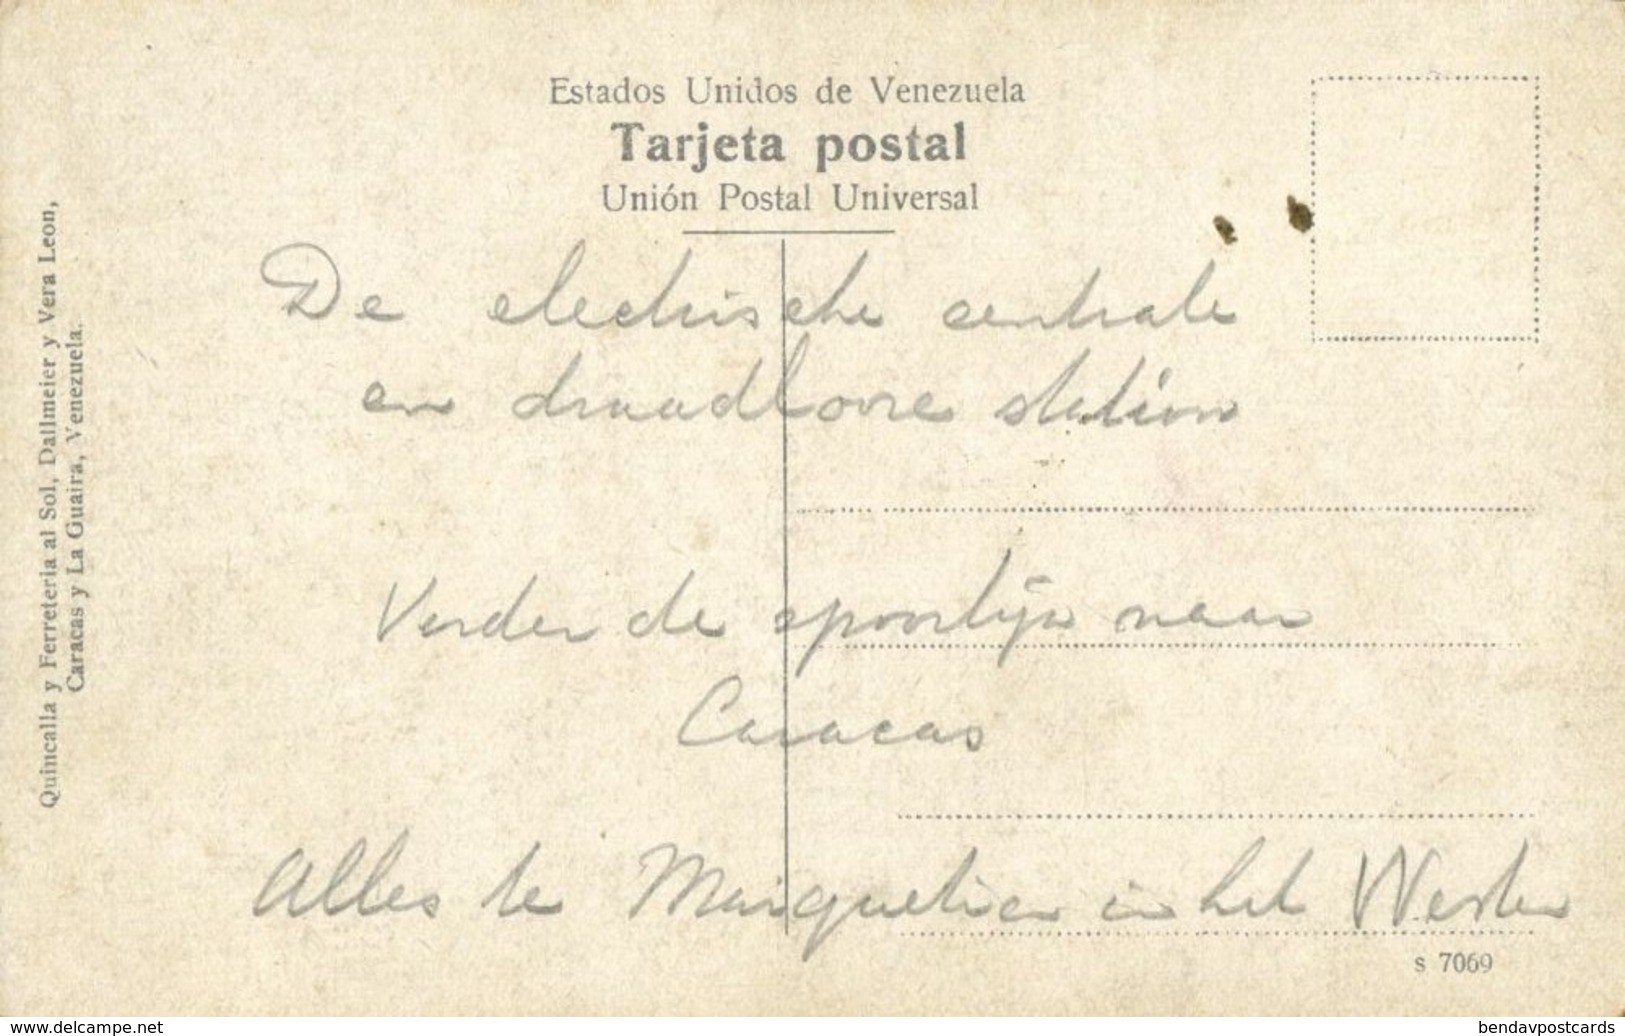 Estados Unidos de Venezuela
Tarjeta postal
Unión Postal Universal
Quincalla y Ferreteria al Sol, Dallmeier y Vera Leon,
Caracas y La Guaira, Venezuela.
De electrische centrale
en draadlooze station
Verder de spoorlijn naar
Caracas
Alles te Maiquetien in het Westen
s 7069
www.delcampe.net
bendavpostcards